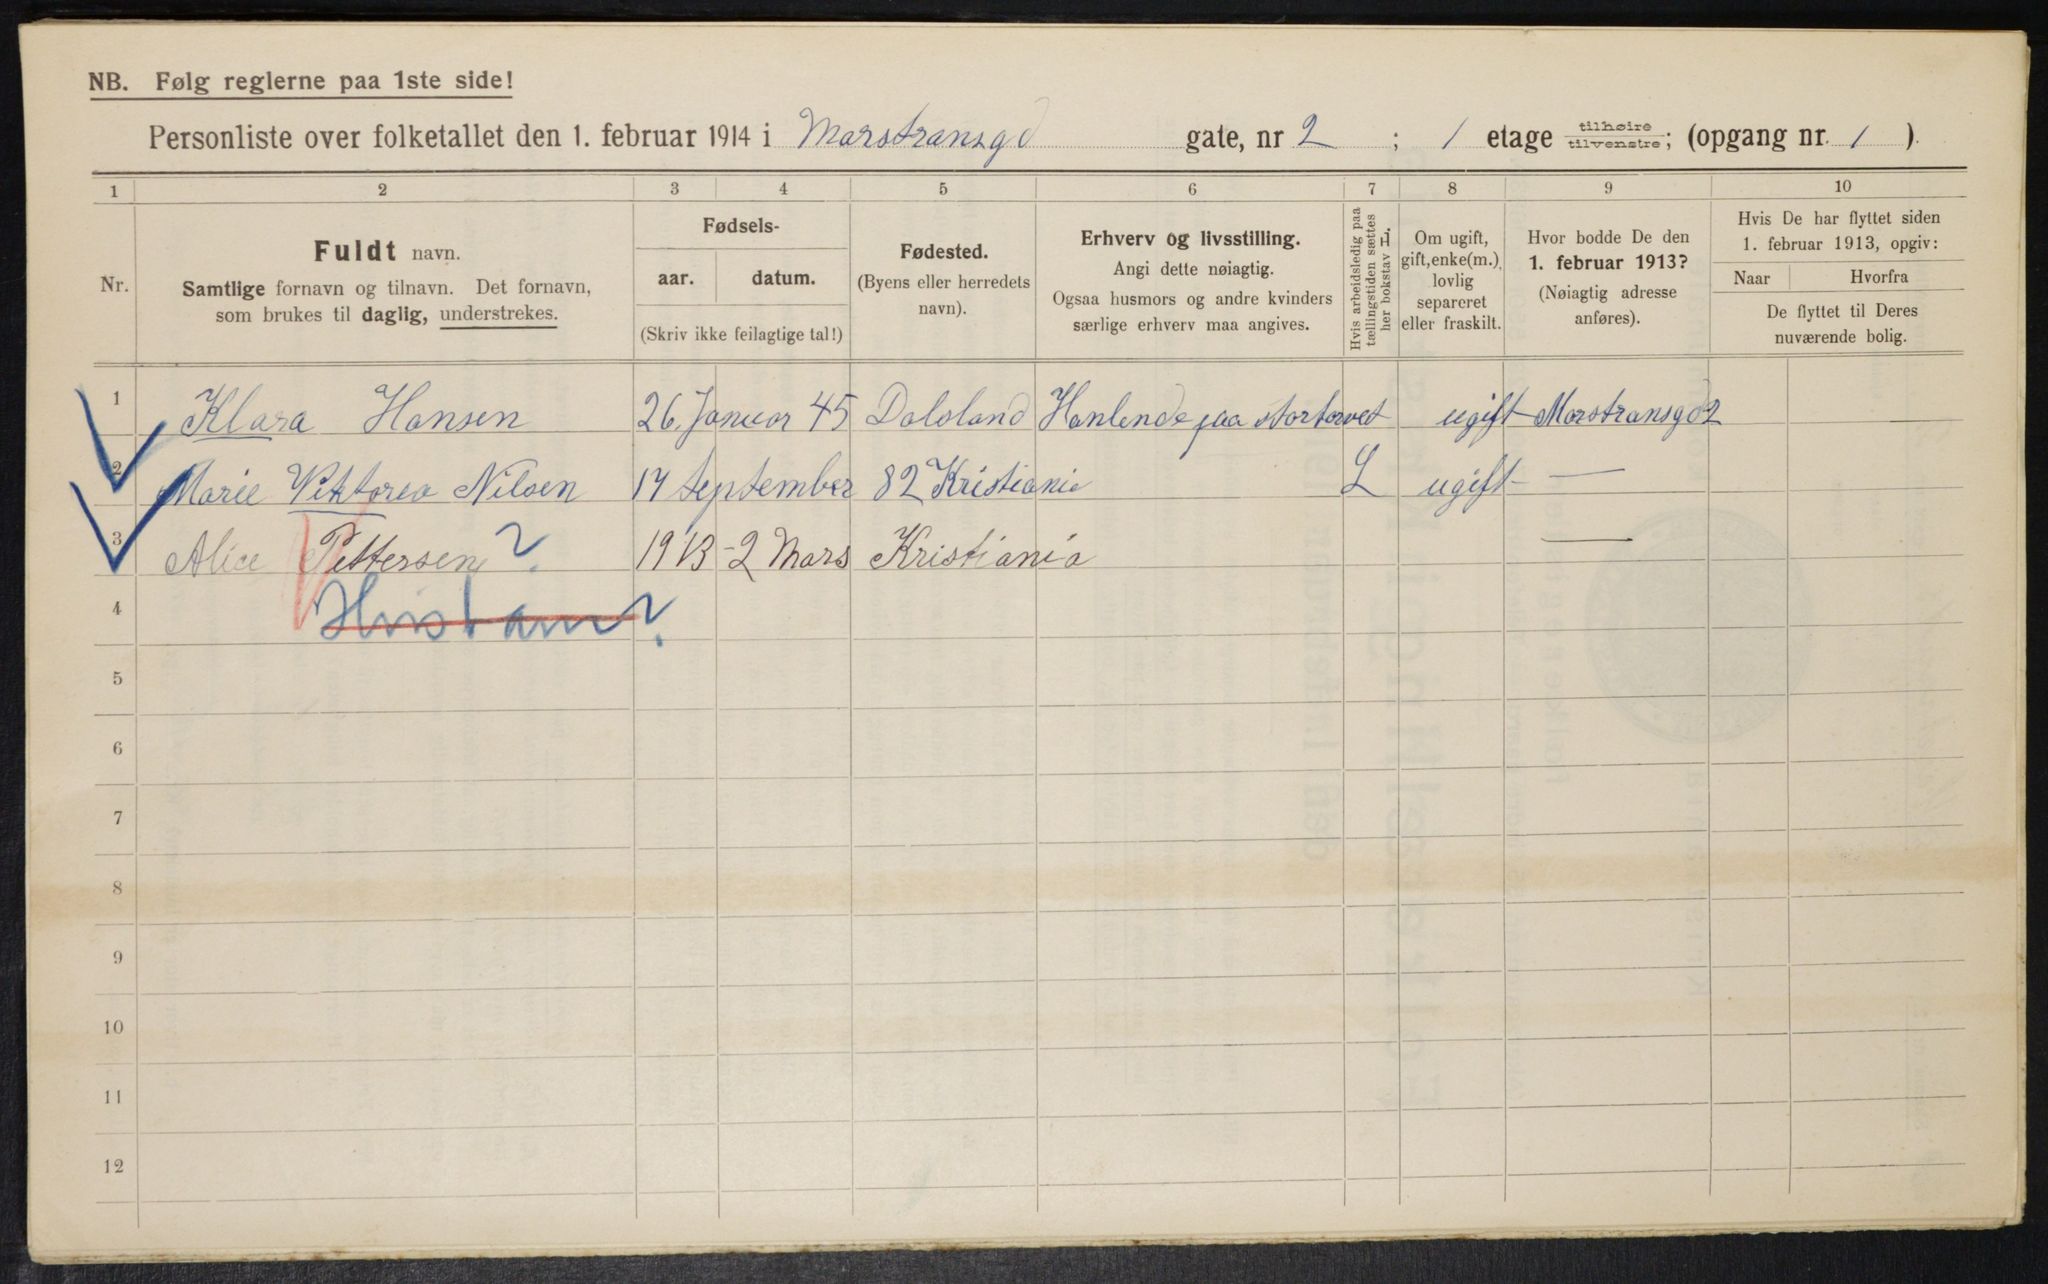 NB. Følg reglerne paa 1ste side!
Personliste over folketallet den 1. februar 1914 i Marstransgd gate, nr 2 ; 1 etage tilhøire tilvenstre; (opgang nr. 1 ).
1 2 3 4 5 6 7 8 9 10
Nr.
Fuldt navn.
Samtlige fornavn og tilnavn. Det fornavn,
som brukes til daglig, understrekes.
Fødsels-
aar. datum.
(Skriv ikke feilagtige tal!)
Fødested.
(Byens eller herredets
navn).
Erhverv og livsstilling.
Angi dette nøiagtig.
Ogsaa husmors og andre kvinders
særlige erhverv maa angives.
Hvis arbeidsledig paa
tællingstiden sættes
her bokstav L.
Om ugift,
gift, enke(m.),
lovlig
separeret
eller fraskilt.
Hvor bodde De den
1. februar 1913?
(Nøiagtig adresse
anføres).
Hvis De har flyttet siden
1. februar 1913, opgiv:
Naar Hvorfra
De flyttet til Deres
nuværende bolig.
1 Klara Hansen 26. Januar 45 Dalsland Hanlende paa stortorvet ugift Marstransgd 2
2 Marie Viktorea Nilsen 17 September 82 Kristiania L ugift —
3 Alice Pettersen ? 1913 - 2 Mars Kristiania —
4 Hvis barn ?
5
6
7
8
9
10
11
12